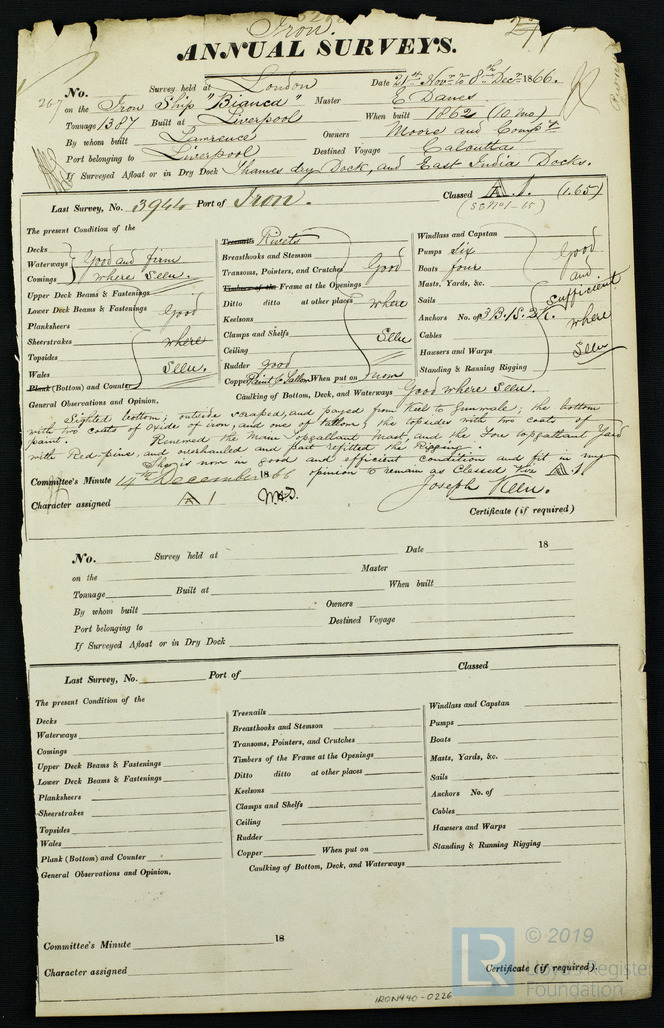 Iron.
ANNUAL SURVEYS.
No. 267 Survey held at London Date 21st Novr to 8th Decr 1866.
on the Iron Ship "Bianca" Master E Dawes
Tonnage 1387 Built at Liverpool When built 1862 (10 mo)
By whom built Lawrence Owners Moore and Compy
Port belonging to Liverpool Destined Voyage Calcutta
If Surveyed Afloat or in Dry Dock Thames dry Dock, and East India Docks.
Last Survey, No. 3944 Port of Iron. Classed A 1. (1.65)
The present Condition of the
Decks
Waterways
Comings
Good and firm
where seen.
Upper Deck Beams & Fastenings
Lower Deck Beams & Fastenings
Planksheers
Sheerstrakes
Topsides
Wales
Plank (Bottom) and Counter
Good
where
Seen.
Treenails Rivets
Breasthooks and Stemson
Transoms, Pointers, and Crutches
Timbers of the Frame at the Openings
Ditto ditto at other places
Keelsons
Clamps and Shelfs
Ceiling
Rudder good
Copper Paint & Tallow When put on now
Good
where
Seen
Windlass and Capstan
Pumps Six
Boats four
Masts, Yards, &c.
Sails
Anchors No. of 3 B. 1 S. 2 K.
Cables
Hawsers and Warps
Standing & Running Rigging
Good
and
sufficient
where
Seen
Caulking of Bottom, Deck, and Waterways Good where seen.
General Observations and Opinion.
Sighted bottom; outside scraped, and payed from Keel to Gunwale; the bottom
with two coats of oxide of iron, and one of tallow; the topsides with two coats of
paint. Renewed the Main topgallant Mast, and the Fore topgallant Yard
with Red pine, and overhauled and part refitted the Rigging.
She is now in good and efficient condition and fit in my
opinion to remain as Classed Viz A 1.
Committee's Minute 14th December 1866
Joseph Keen.
Character assigned A 1
Certificate (if required)
No. Survey held at Date 18
on the Master
Tonnage Built at When built
By whom built Owners
Port belonging to Destined Voyage
If Surveyed Afloat or in Dry Dock
Last Survey, No. Port of Classed
The present Condition of the
Decks
Waterways
Comings
Upper Deck Beams & Fastenings
Lower Deck Beams & Fastenings
Planksheers
Sheerstrakes
Topsides
Wales
Plank (Bottom) and Counter
General Observations and Opinion.
Treenails
Breasthooks and Stemson
Transoms, Pointers, and Crutches
Timbers of the Frame at the Openings
Ditto ditto at other places
Keelsons
Clamps and Shelfs
Ceiling
Rudder
Copper When put on
Caulking of Bottom, Deck, and Waterways
Windlass and Capstan
Pumps
Boats
Masts, Yards, &c.
Sails
Anchors No. of
Cables
Hawsers and Warps
Standing & Running Rigging
Committee's Minute 18
Character assigned
Certificate (if required).
IRON440-0226
LR
© 2019
Lloyd's Register
Foundation